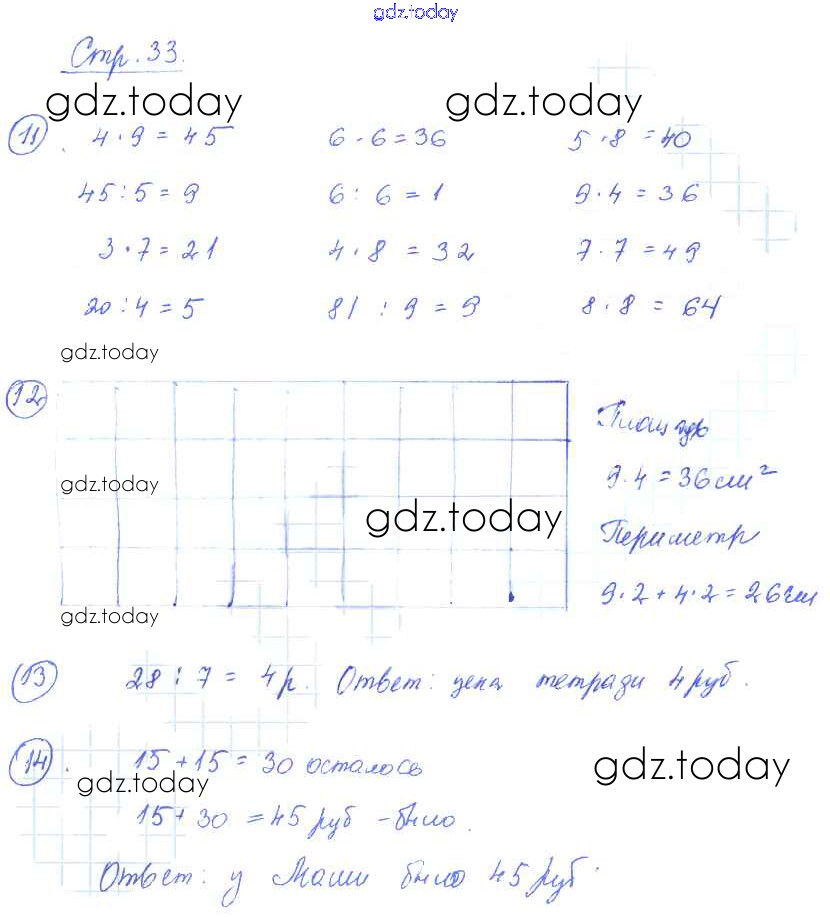 gdz.today
Стр. 33.
gdz.today gdz.today
11. 4 · 9 = 45 6 · 6 = 36 5 · 8 = 40
45 : 5 = 9 6 : 6 = 1 9 · 4 = 36
3 · 7 = 21 4 · 8 = 32 7 · 7 = 49
20 : 4 = 5 81 : 9 = 9 8 · 8 = 64
gdz.today
12
Площадь
gdz.today
9 · 4 = 36 см²
gdz.today
Периметр
9 · 2 + 4 · 2 = 26 см
gdz.today
13 28 : 7 = 4 р. Ответ: цена тетради 4 руб.
14. 15 + 15 = 30 осталось
gdz.today gdz.today
15 + 30 = 45 руб - было.
Ответ: у Маши было 45 руб.